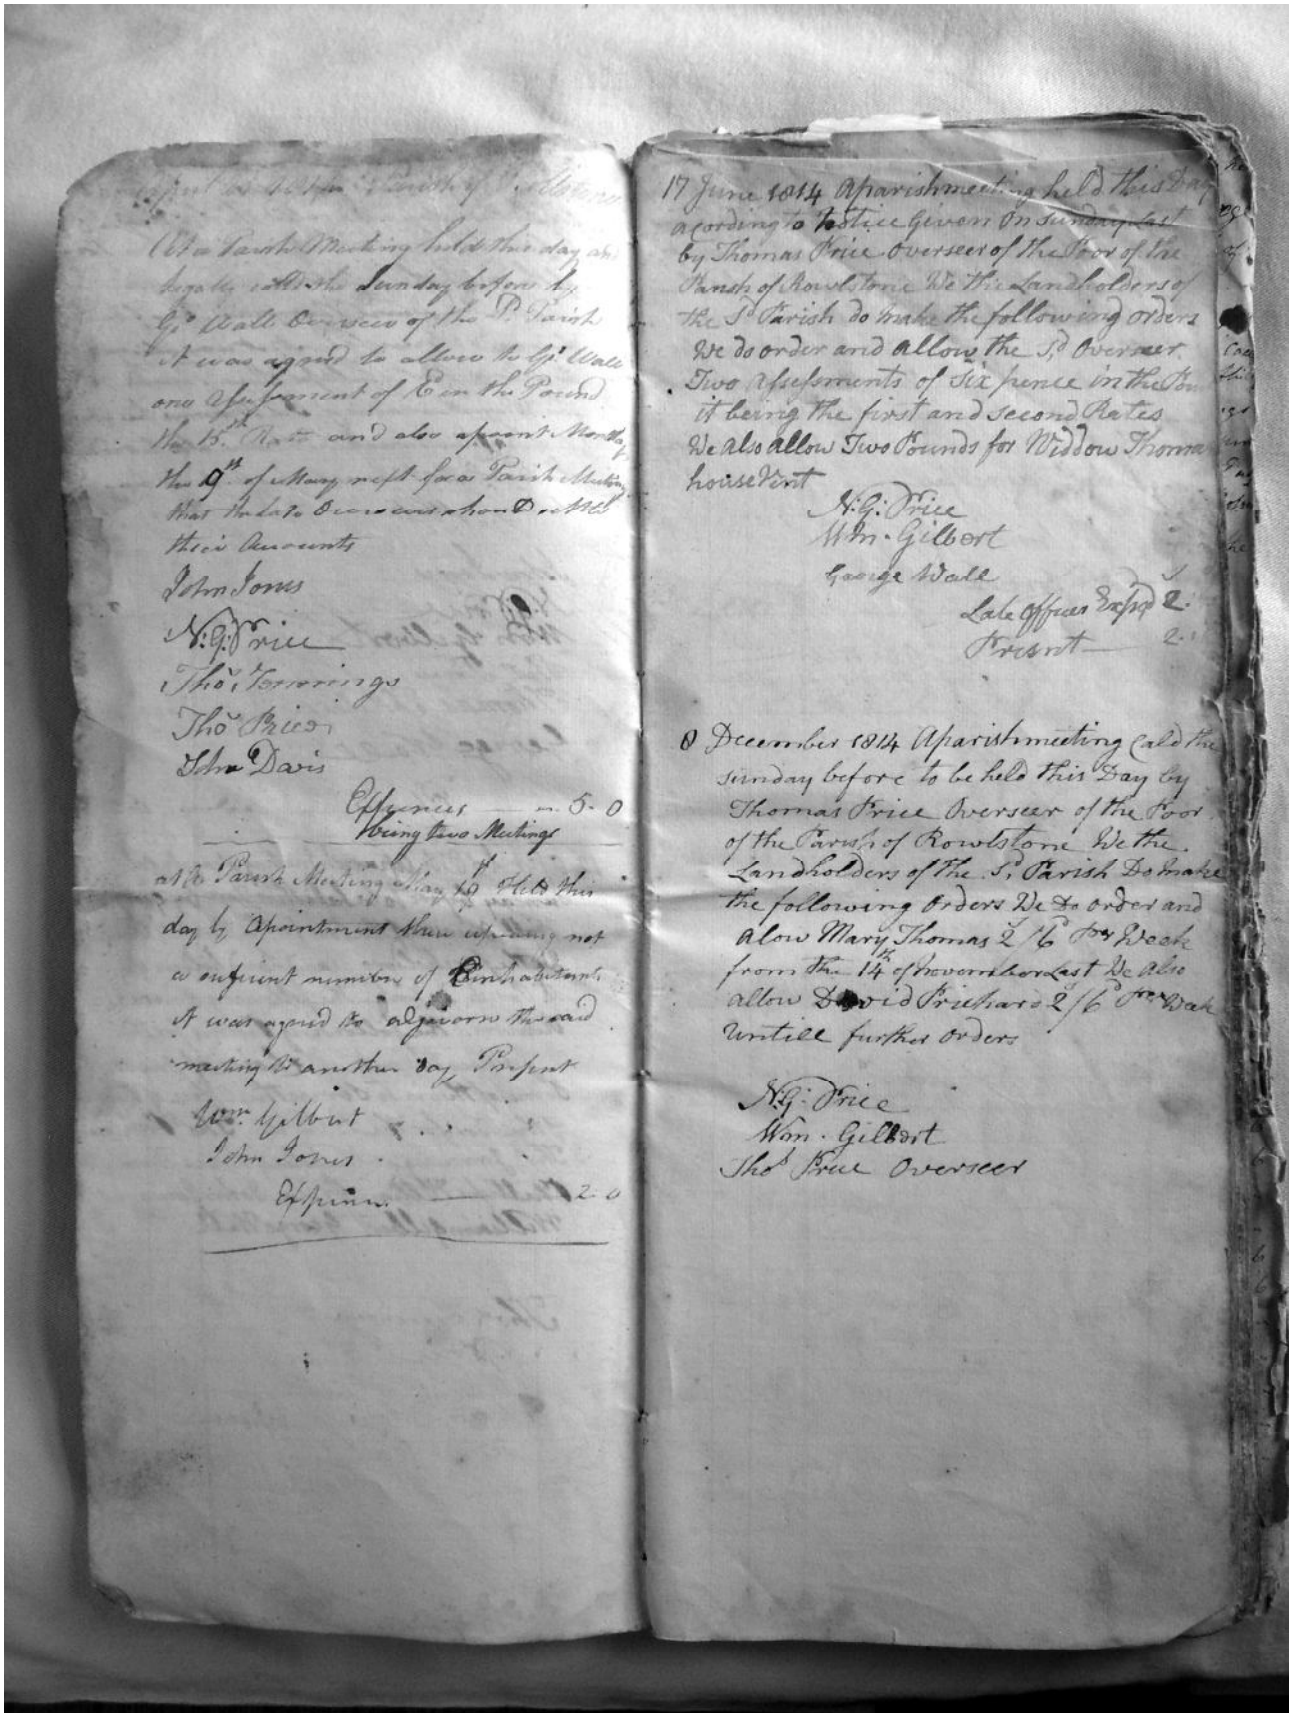 Parish of
At a Parish Meeting held this day and
legaly calld the Sunday before by
Go Wall Overseer of the Parish
it was agreed to allow to Go Wall
one Assessment of in the Pound
the 15th Rate and also apoint Monday
the 9th of May next for a Parish Meeting
that the late Overseers should settle
their Accounts
John Jones
N: G: Price
Thos Jennings
Thos Price
John Davis
Expences 5-0
being two Meetings
at a Parish Meeting May 9 Held this
day by Apointment there apearing not
a suficient number of inhabitants
it was agreed to adjourn the said
meeting to another day Present
Wm Gilbert
John Jones
2-0
17 June 1814 A parish meeting held this Day
acording to Notice Given On Sunday Last
by Thomas Price Overseer of the Poor of the
Parish of Rowlstone We the Landholders of
the Sd Parish do make the following orders
We do order and allow the Sd Overseer
Two Assessments of Six pence in the
it being the first and second Rates
We Also Allow Two Pounds for Widdow Thomas
house Rent
N: G: Price
Wm. Gilbert
George Wall
Late Officers 2.
Presnt 2.
8 December 1814 A parish meeting Cald the
sunday before to be held this Day by
Thomas Price Overseer of the Poor
of the Parish of Rowlstone We the
Landholders of the Sd Parish Do make
the following Orders We Do order and
alow Mary Thomas 2/6d per Week
from the 14th of november Last We Also
allow David Prichard 2/6d per Week
Untill further orders
N: G: Price
Wm. Gilbert
Thos Price Overseer